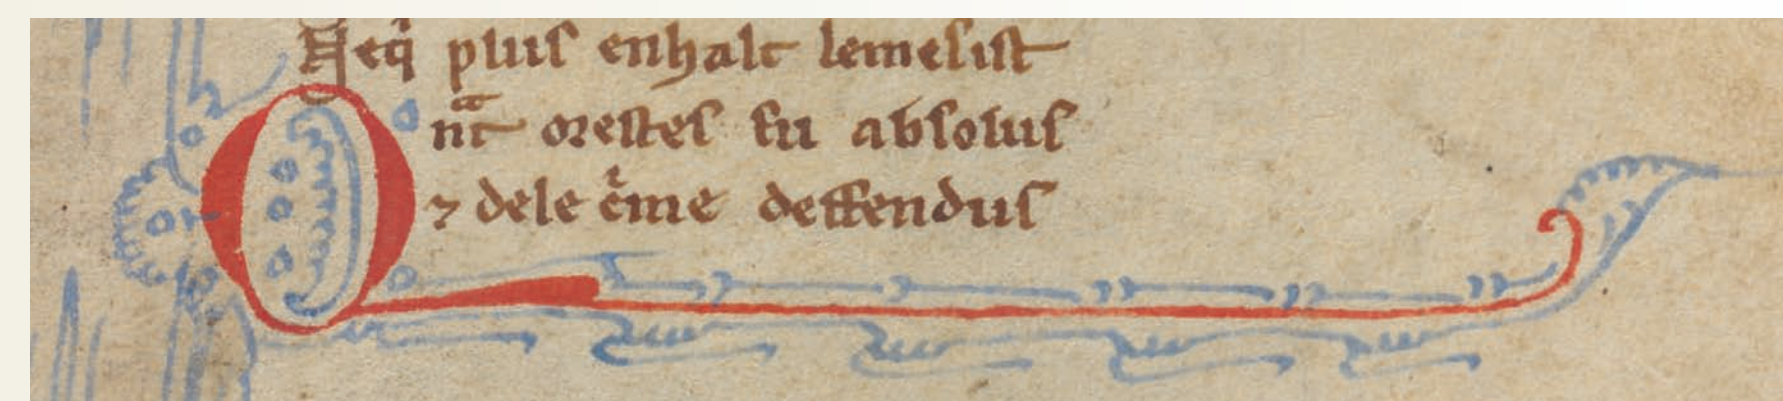 Neqͥ pluſ enhalt lemeſiſt
Qnͣt oreſteſ fu abſoluſ
⁊ dele cͥme deffenduſ